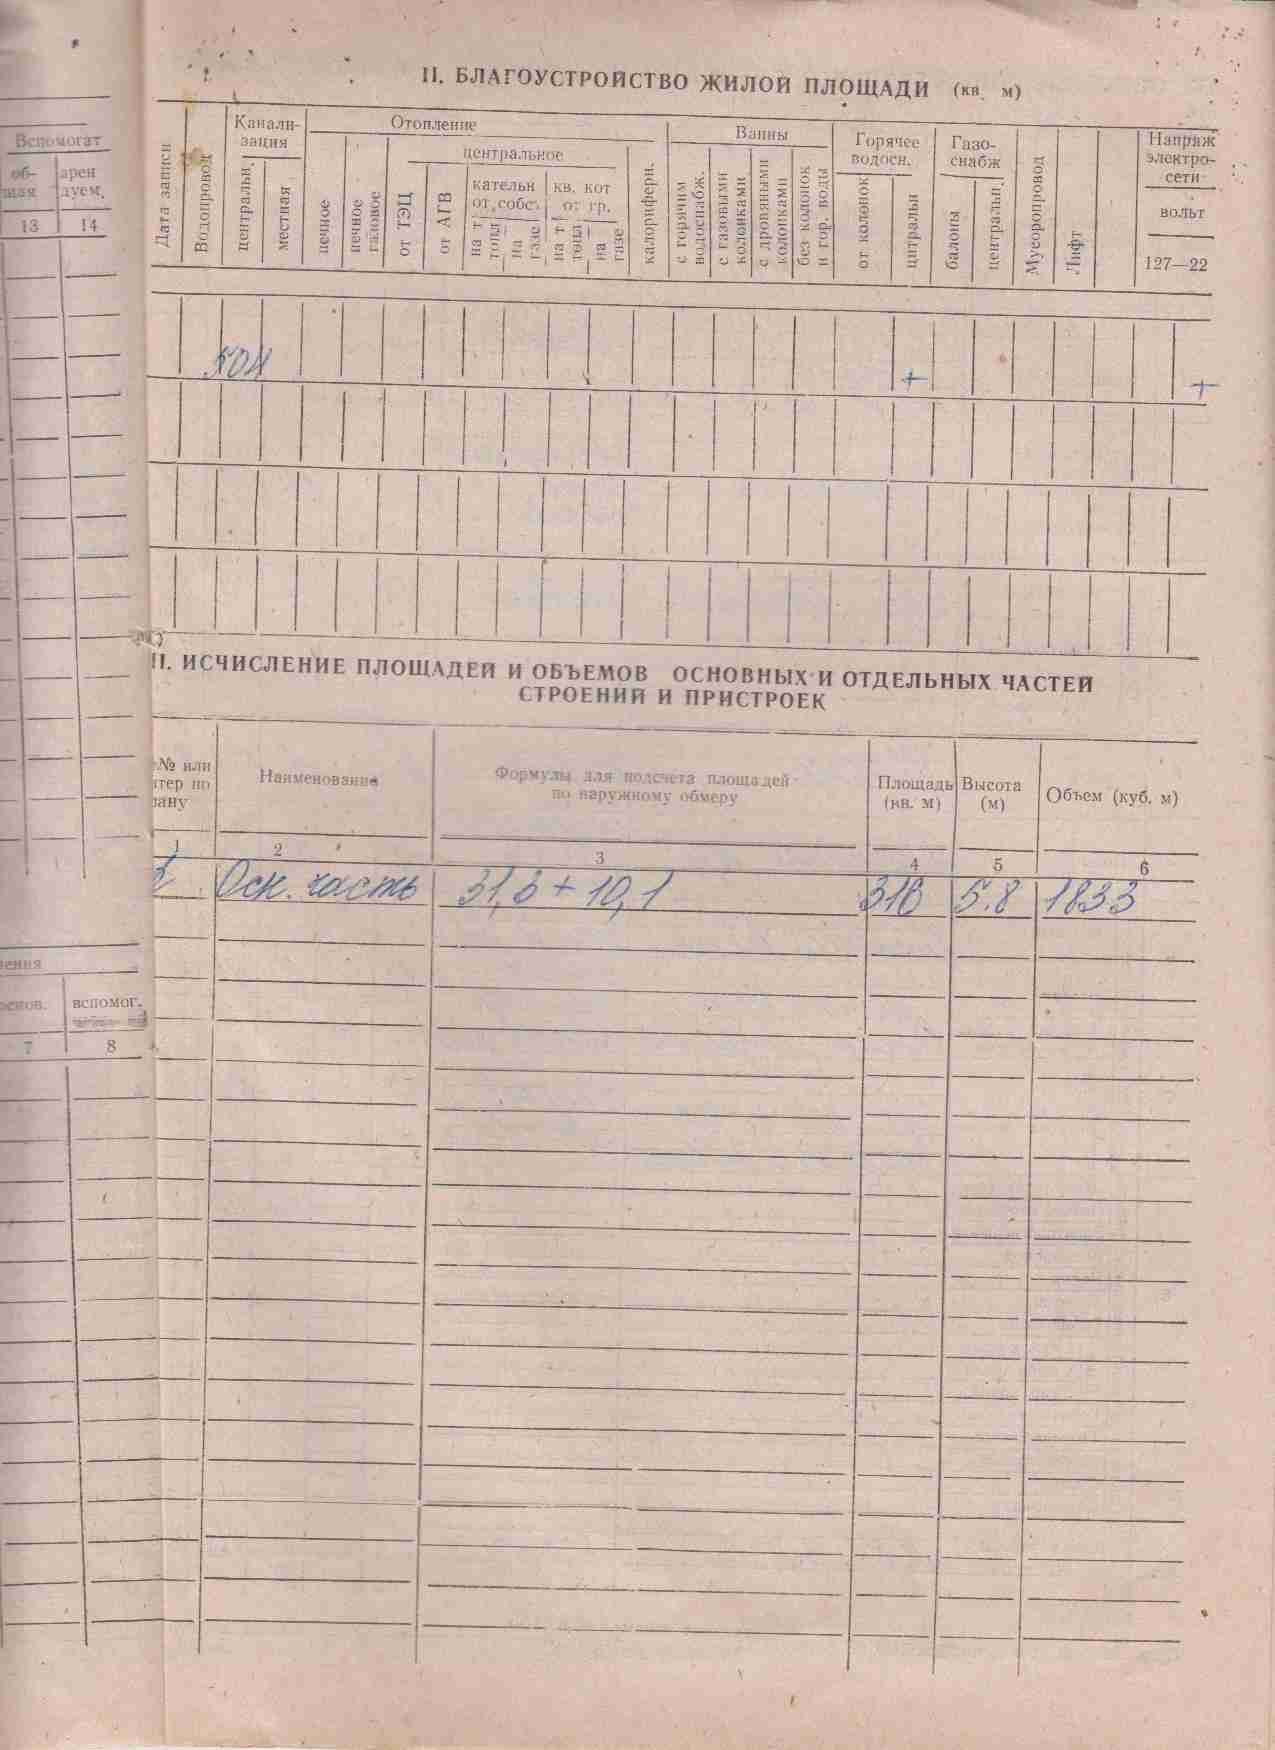 II. БЛАГОУСТРОЙСТВО ЖИЛОЙ ПЛОЩАДИ (кв. м)
Дата записи
Водопровод
Канали-
зация
центральн.
местная
Отопление
печное
печное
газовое
центральное
от ТЭЦ
от АГВ
кательн
от собс.
на т
топл
на
газе
кв. кот
от гр.
на т
топл
на
газе
калориферн.
Ванны
с горячим
водоснабж.
с газовыми
колонками
с дровяными
колонками
без колонок
и гор. воды
Горячее
водосн.
от колонок
цитральн
Газо-
снабж
балоны
центральн.
Мусоропровод
Лифт
Напряж
электро-
сети
вольт
127—22
504
+ +
II. ИСЧИСЛЕНИЕ ПЛОЩАДЕЙ И ОБЪЕМОВ ОСНОВНЫХ И ОТДЕЛЬНЫХ ЧАСТЕЙ
СТРОЕНИЙ И ПРИСТРОЕК
№ или
тер по
лану
Наименование
Формулы для подсчета площадей
по наружному обмеру
Площадь
(кв. м)
Высота
(м)
Объем (куб. м)
1 2 3 4 5 6
Осн. часть 31,3 + 10,1 316 5.8 1833
Вспомогат
об-
щая
арен
дуем.
13 14
ения
основ. вспомог.
7 8